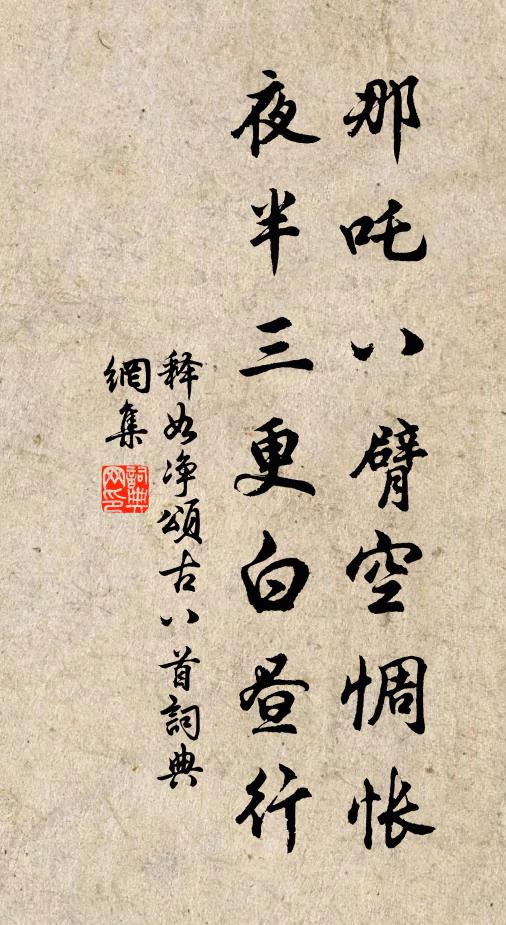 那吒八臂空惆怅
夜半三更白昼行
释如净颂古八首詞典
網集
詞典
网印